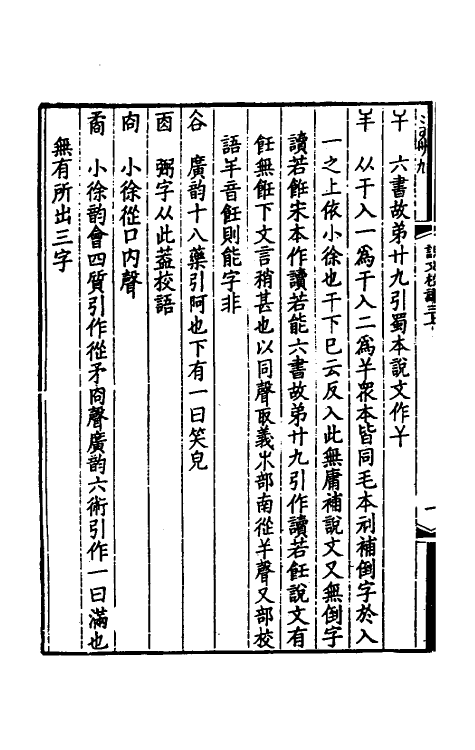 𢆉　六書故弟廿九引蜀本說文作𢆉
𢆉　从干入一爲干入二爲𢆉眾本皆同毛本刓補倒字於入
一之上依小徐也干下巳云反入此無庸補說文又無倒字
讀若飪宋本作讀若能六書故弟廿九引作讀若飪說文有
飪無䭃下文言稍甚也以同聲取義㞢部南從𢆉聲又部㕝
語𢆉音飪則能字非
谷　廣韵十八藥引阿也下有一曰笑皃
㐁　弼字从此葢校語
㕯　小徐從口内聲
矞　小徐韵會四質引作從矛㕯聲廣韵六術引作一曰滿也
無有所出三字
說文校議三上